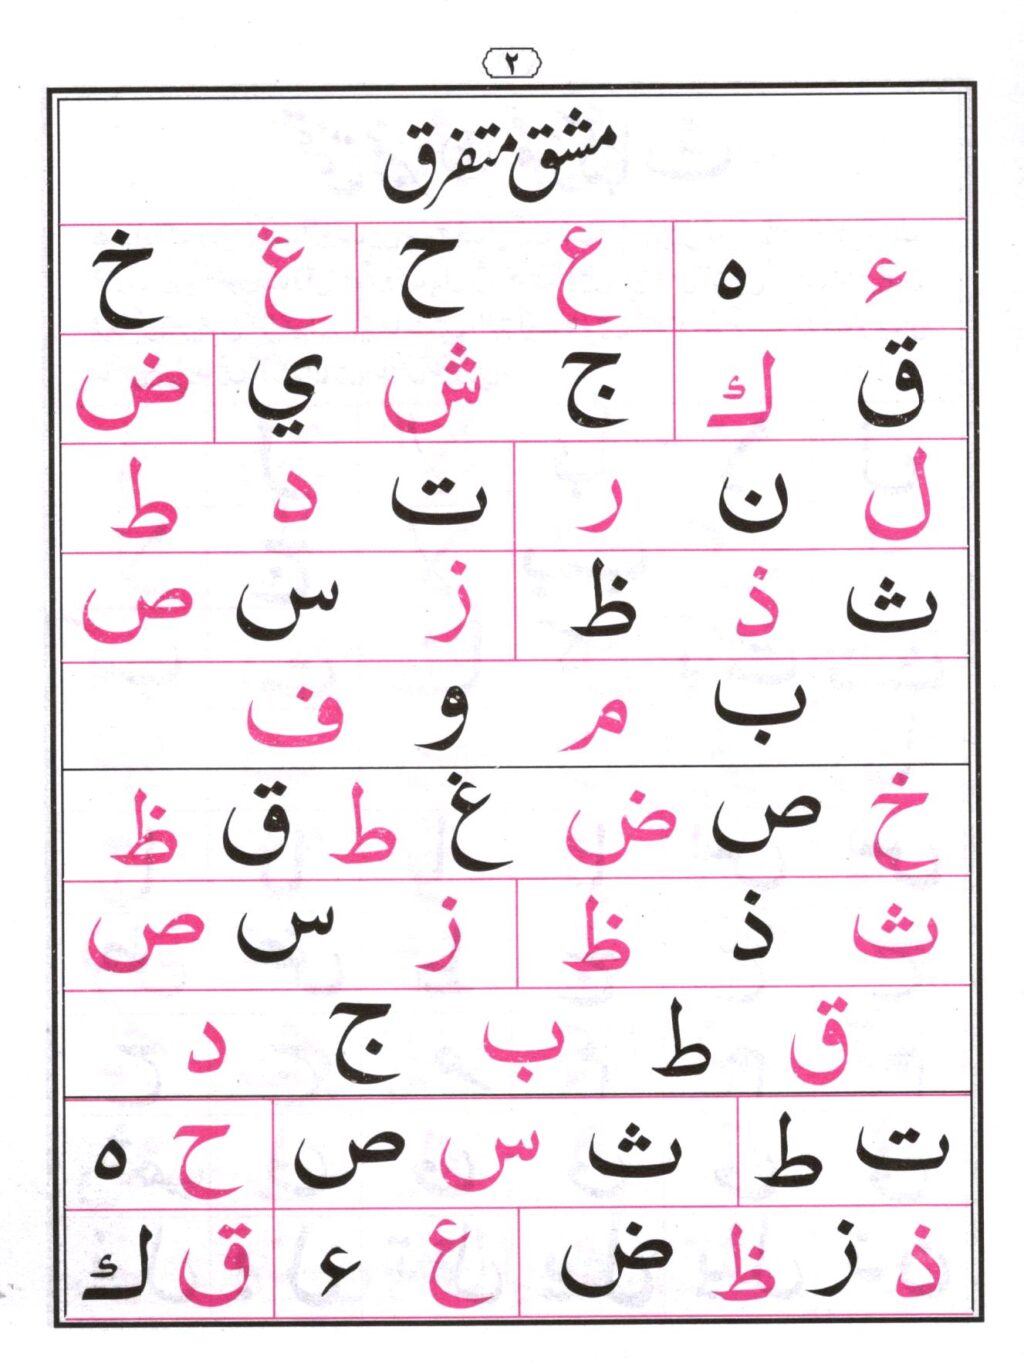 ٢
مشق متفرق
ء ه ع ح غ خ
ق ك ج ش ي ض
ل ن ر ت د ط
ث ذ ظ ز س ص
ب م و ف
خ ص ض غ ط ق ظ
ث ذ ظ ز س ص
ق ط ب ج د
ت ط ث س ص ح ه
ذ ز ظ ض ع ء ق ك